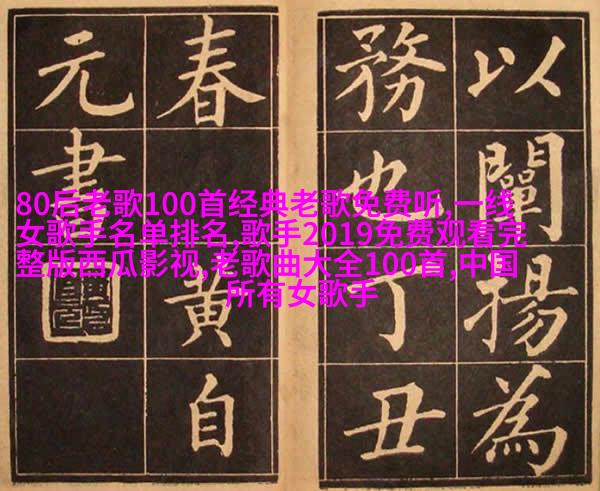 以闡揚為
務也丁丑
春黃自
元書
80后老歌100首经典老歌免费听,一线
女歌手名单排名,歌手2019免费观看完
整版西瓜影视,老歌曲大全100首,中国
所有女歌手